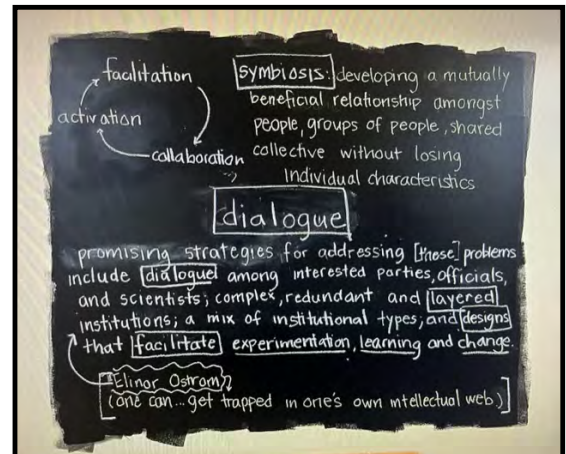 facilitation
activation
collaboration
symbiosis: developing a mutually
beneficial relationship amongst
people, groups of people, shared
collective without losing
individual characteristics
dialogue
promising strategies for addressing [these] problems
include dialogue among interested parties, officials,
and scientists; complex, redundant and layered
institutions; a mix of institutional types; and designs
that facilitate experimentation, learning and change.
Elinor Ostrom
(one can... get trapped in one's own intellectual web.)